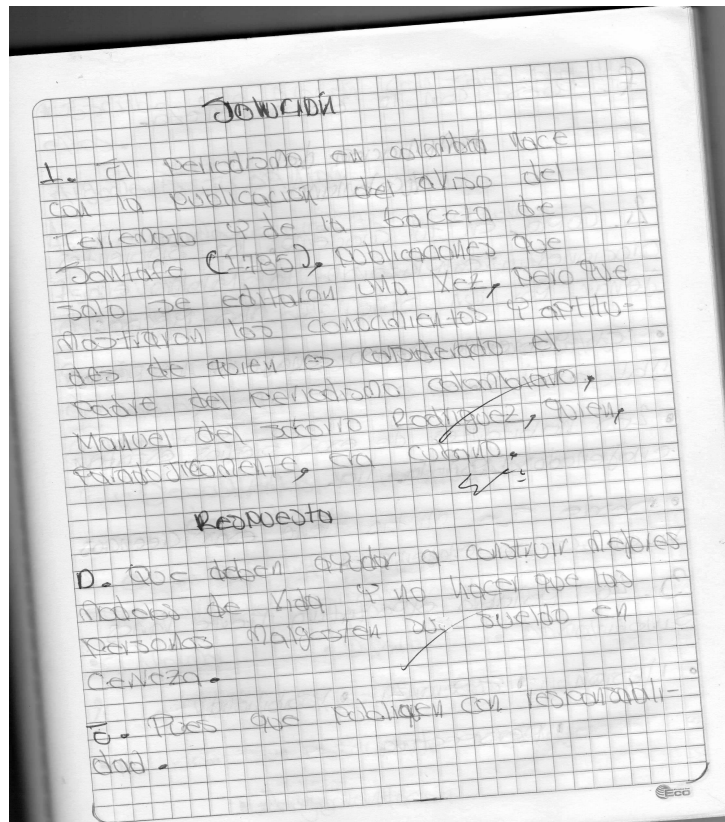 SOLUCIÓN
1. El periodismo en colombia nace
con la publicación del aviso del
Terremoto y de la Gaceta de
Santafe (1785), publicaciones que
solo se editaron una vez, pero que
mostraron los conocimientos y aptitu-
des de quien es considerado el
padre del periodismo colombiano,
Manuel del socorro Rodriguez, quien,
paradojicamente, era cubano.
RESPUESTA
D. Que deben ayudar a construir mejores
modelos de vida y no hacer que las
personas malgasten su sueldo en
cerveza.
E. Pues que publiquen con responsabili-
dad.
ECO